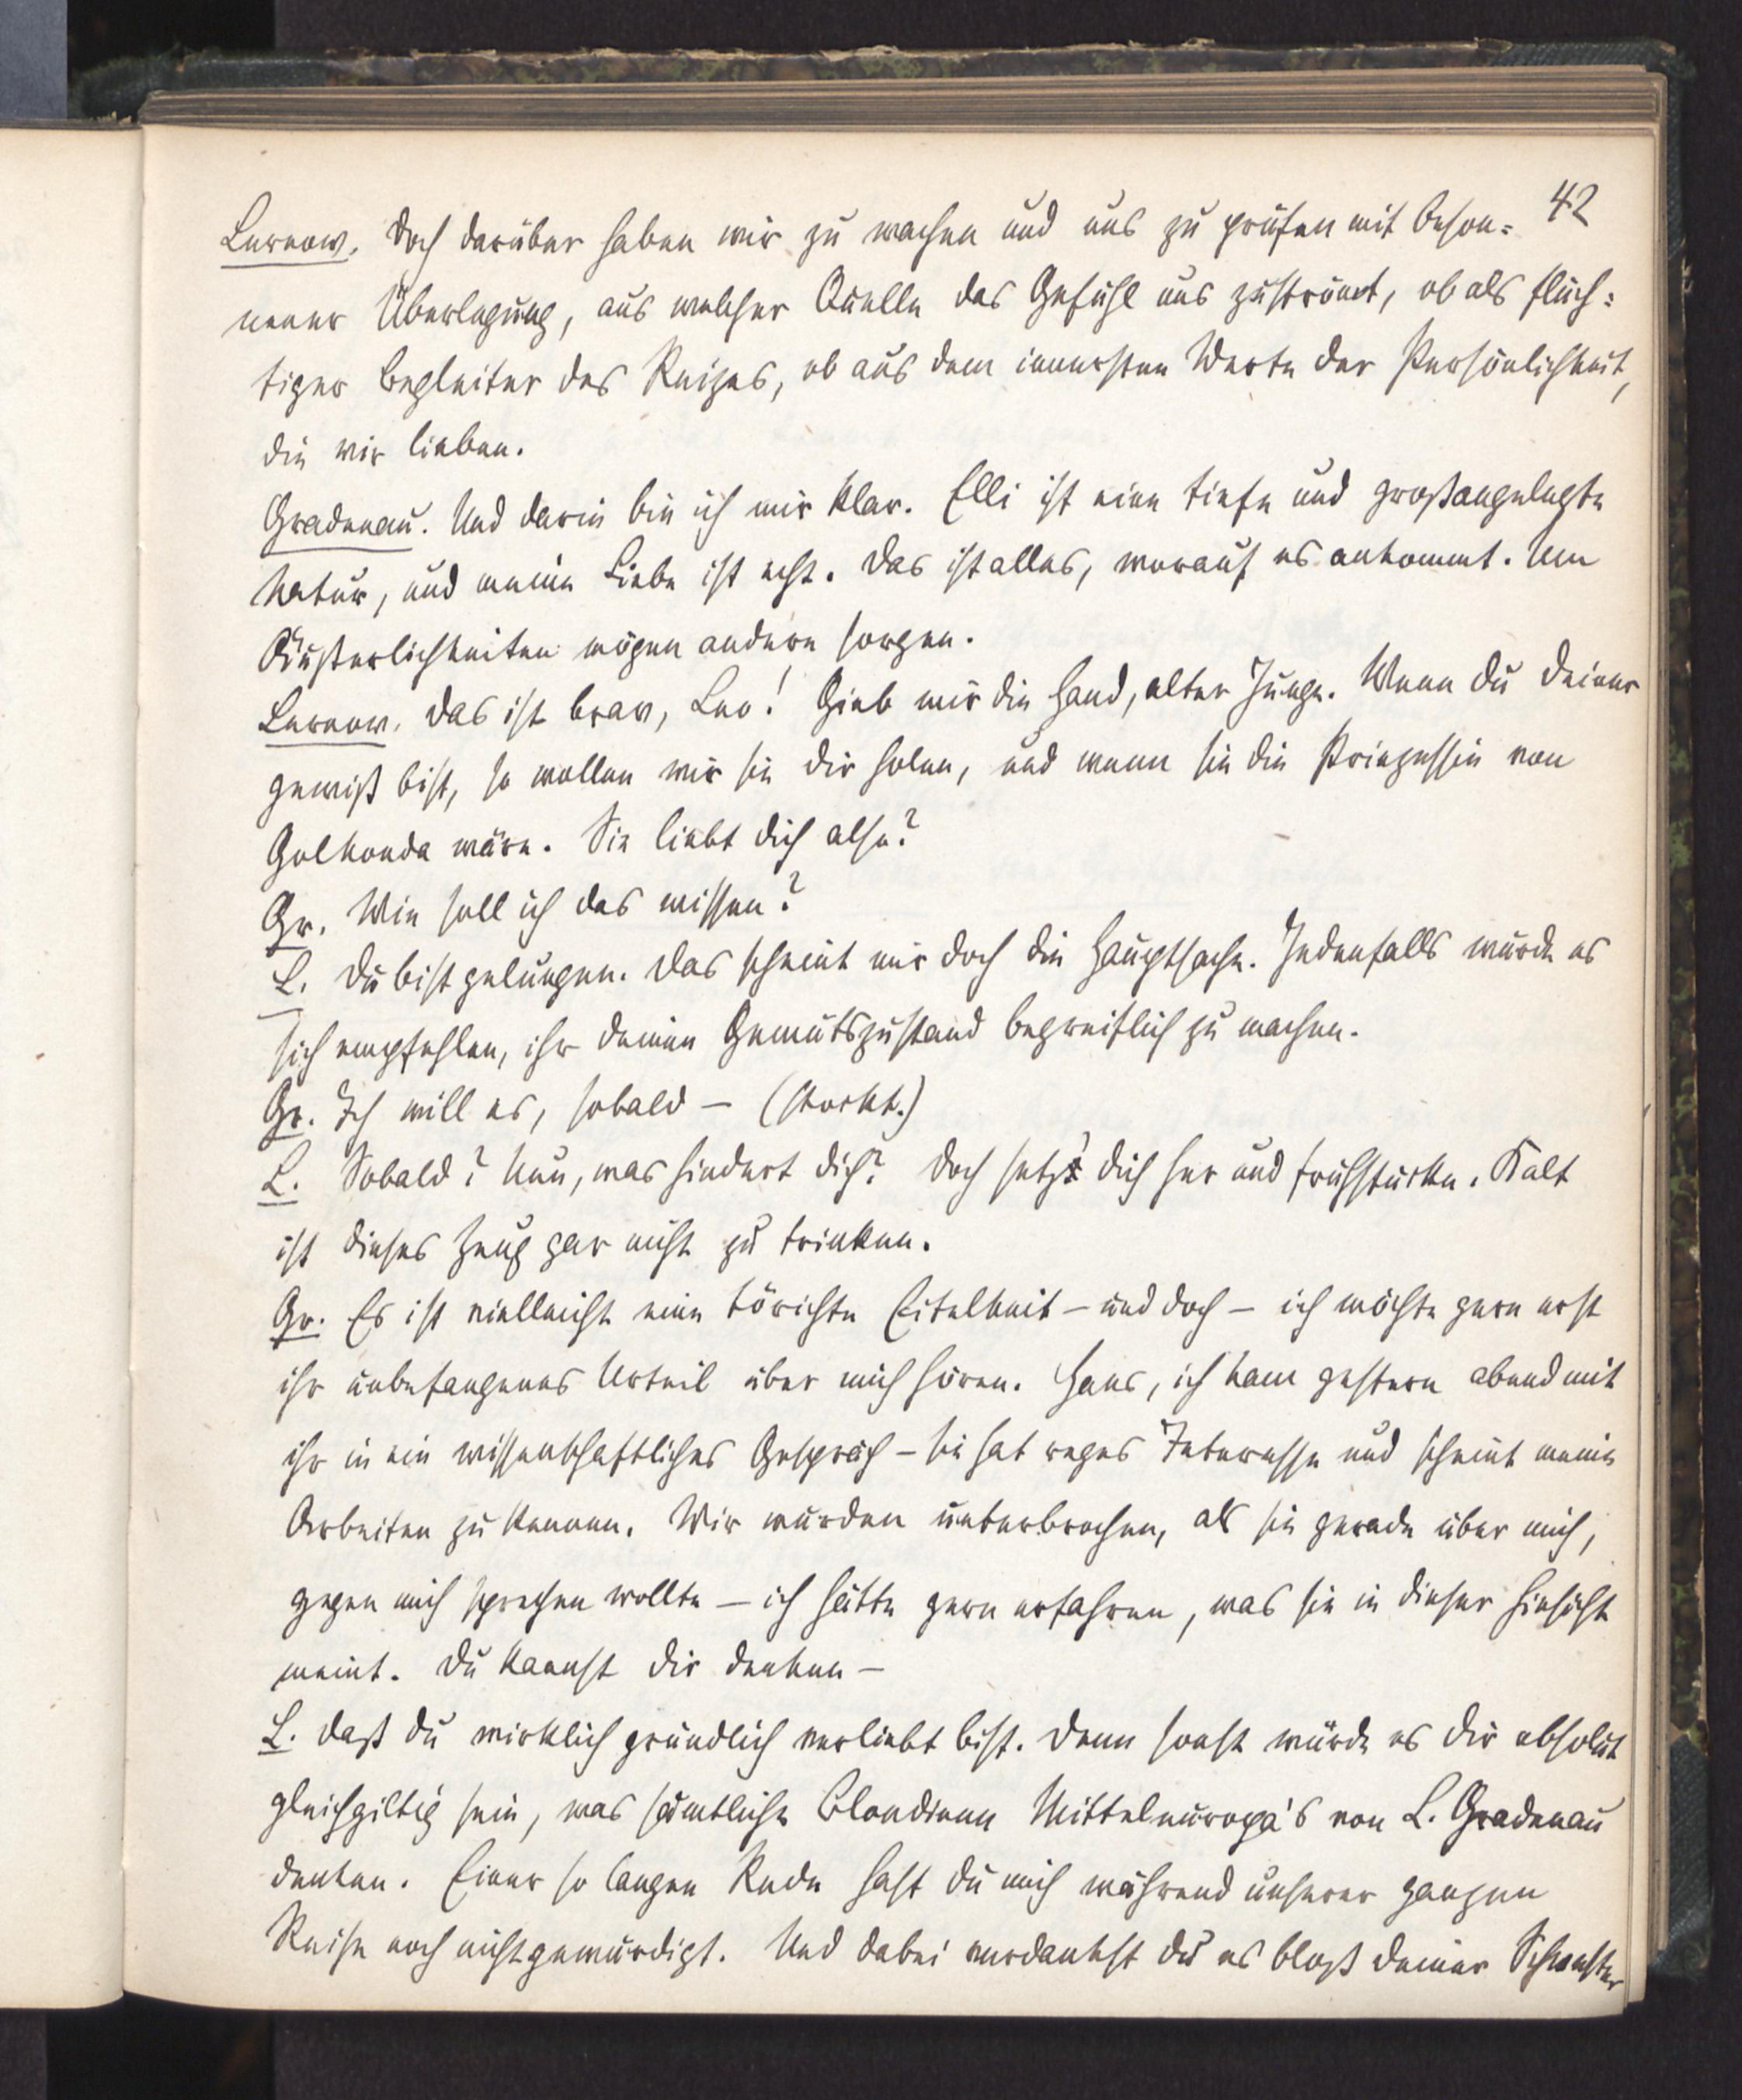 42
Lernow. Doch darüber haben wir zu wachen und uns zu prüfen mit beson=
nener Überlegung, aus welcher Quelle das Gefühl uns zuströmt, ob als flüch=
tiger Begleiter des Reizes, ob aus dem innersten Werte der Persönlichkeit,
die wir lieben.
Gradenau. Und darin bin ich mir klar. Elli ist eine tiefe und großangelegte
Natur, und meine Liebe ist echt. Das ist alles, worauf es ankommt. Um
Äußerlichkeiten mögen andere sorgen.
Lernow. Das ist brav, Leo! Gieb mir die Hand, alter Junge. Wenn du deiner
gewiß bist, so wollen wir sie dir holen, und wenn sie die Prinzessin von
Golkonda wäre. Sie liebt dich also?
Gr. Wie soll ich das wissen?
L. Du bist gelungen. Das scheint mir doch die Hauptsache. Jedenfalls würde es
sich empfehlen, ihr deinen Gemütszustand begreiflich zu machen.
Gr. Ich will es, sobald — (stockt.)
L. Sobald? Nun, was hindert dich? Doch setz' dich her und frühstücke. Kalt
ist dieses Zeug gar nicht zu trinken.
Gr. Es ist vielleicht eine törichte Eitelkeit — und doch — ich möchte gern erst
ihr unbefangenes Urteil über mich hören. Hans, ich kam gestern abend mit
ihr in ein wissenschaftliches Gespräch — sie hat reges Interesse und scheint meine
Arbeiten zu kennen. Wir wurden unterbrochen, als sie gerade über mich,
gegen mich sprechen wollte — ich hätte gern erfahren, was sie in dieser Hinsicht
meint. Du kannst dir denken —
L. Daß du wirklich gründlich verliebt bist. Denn sonst würde es dir absolut
gleichgiltig sein, was sämtliche Blondinen Mitteleuropa's von L. Gradenau
denken. Einer so langen Rede hast du mich während unserer ganzen
Reise noch nicht gewürdigt. Und dabei verdankst du es bloß deiner Schwester